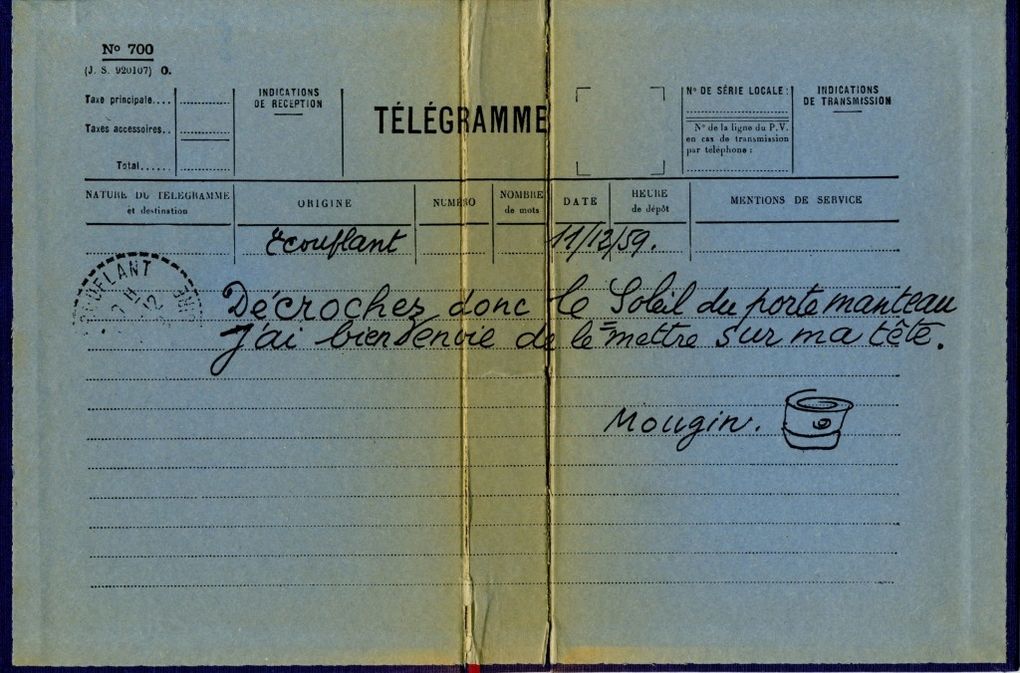 Nº 700
(J. S. 920107) O.
Taxe principale....
Taxes accessoires..
Total......
INDICATIONS
DE RÉCEPTION
TÉLÉGRAMME
Nº DE SÉRIE LOCALE :
Nº de la ligne du P.V.
en cas de transmission
par téléphone :
INDICATIONS
DE TRANSMISSION
NATURE DU TÉLÉGRAMME
et destination
ORIGINE
NUMÉRO
NOMBRE
de mots
DATE
HEURE
de dépôt
MENTIONS DE SERVICE
Ecouflant
11/12/59.
OUFLANT
12
Décrochez donc le Soleil du porte manteau
J'ai bien envie de le mettre sur ma tête.
Mougin.